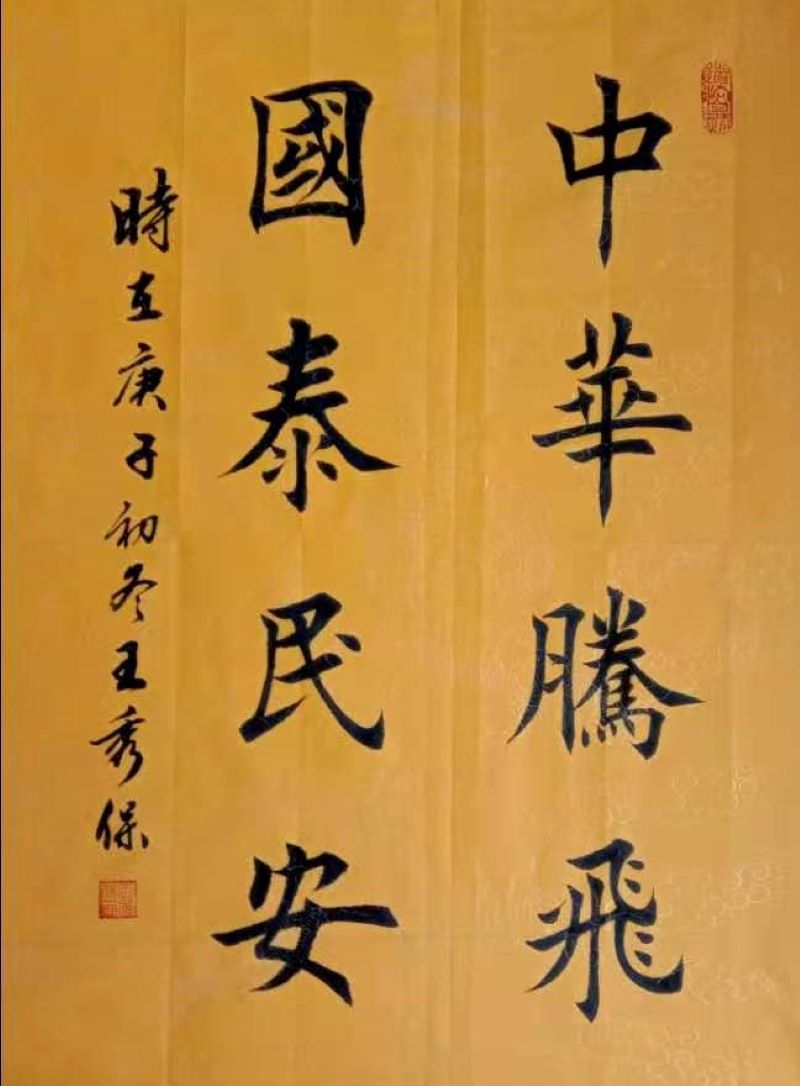 中華騰飛
國泰民安
時在庚子初冬王秀保